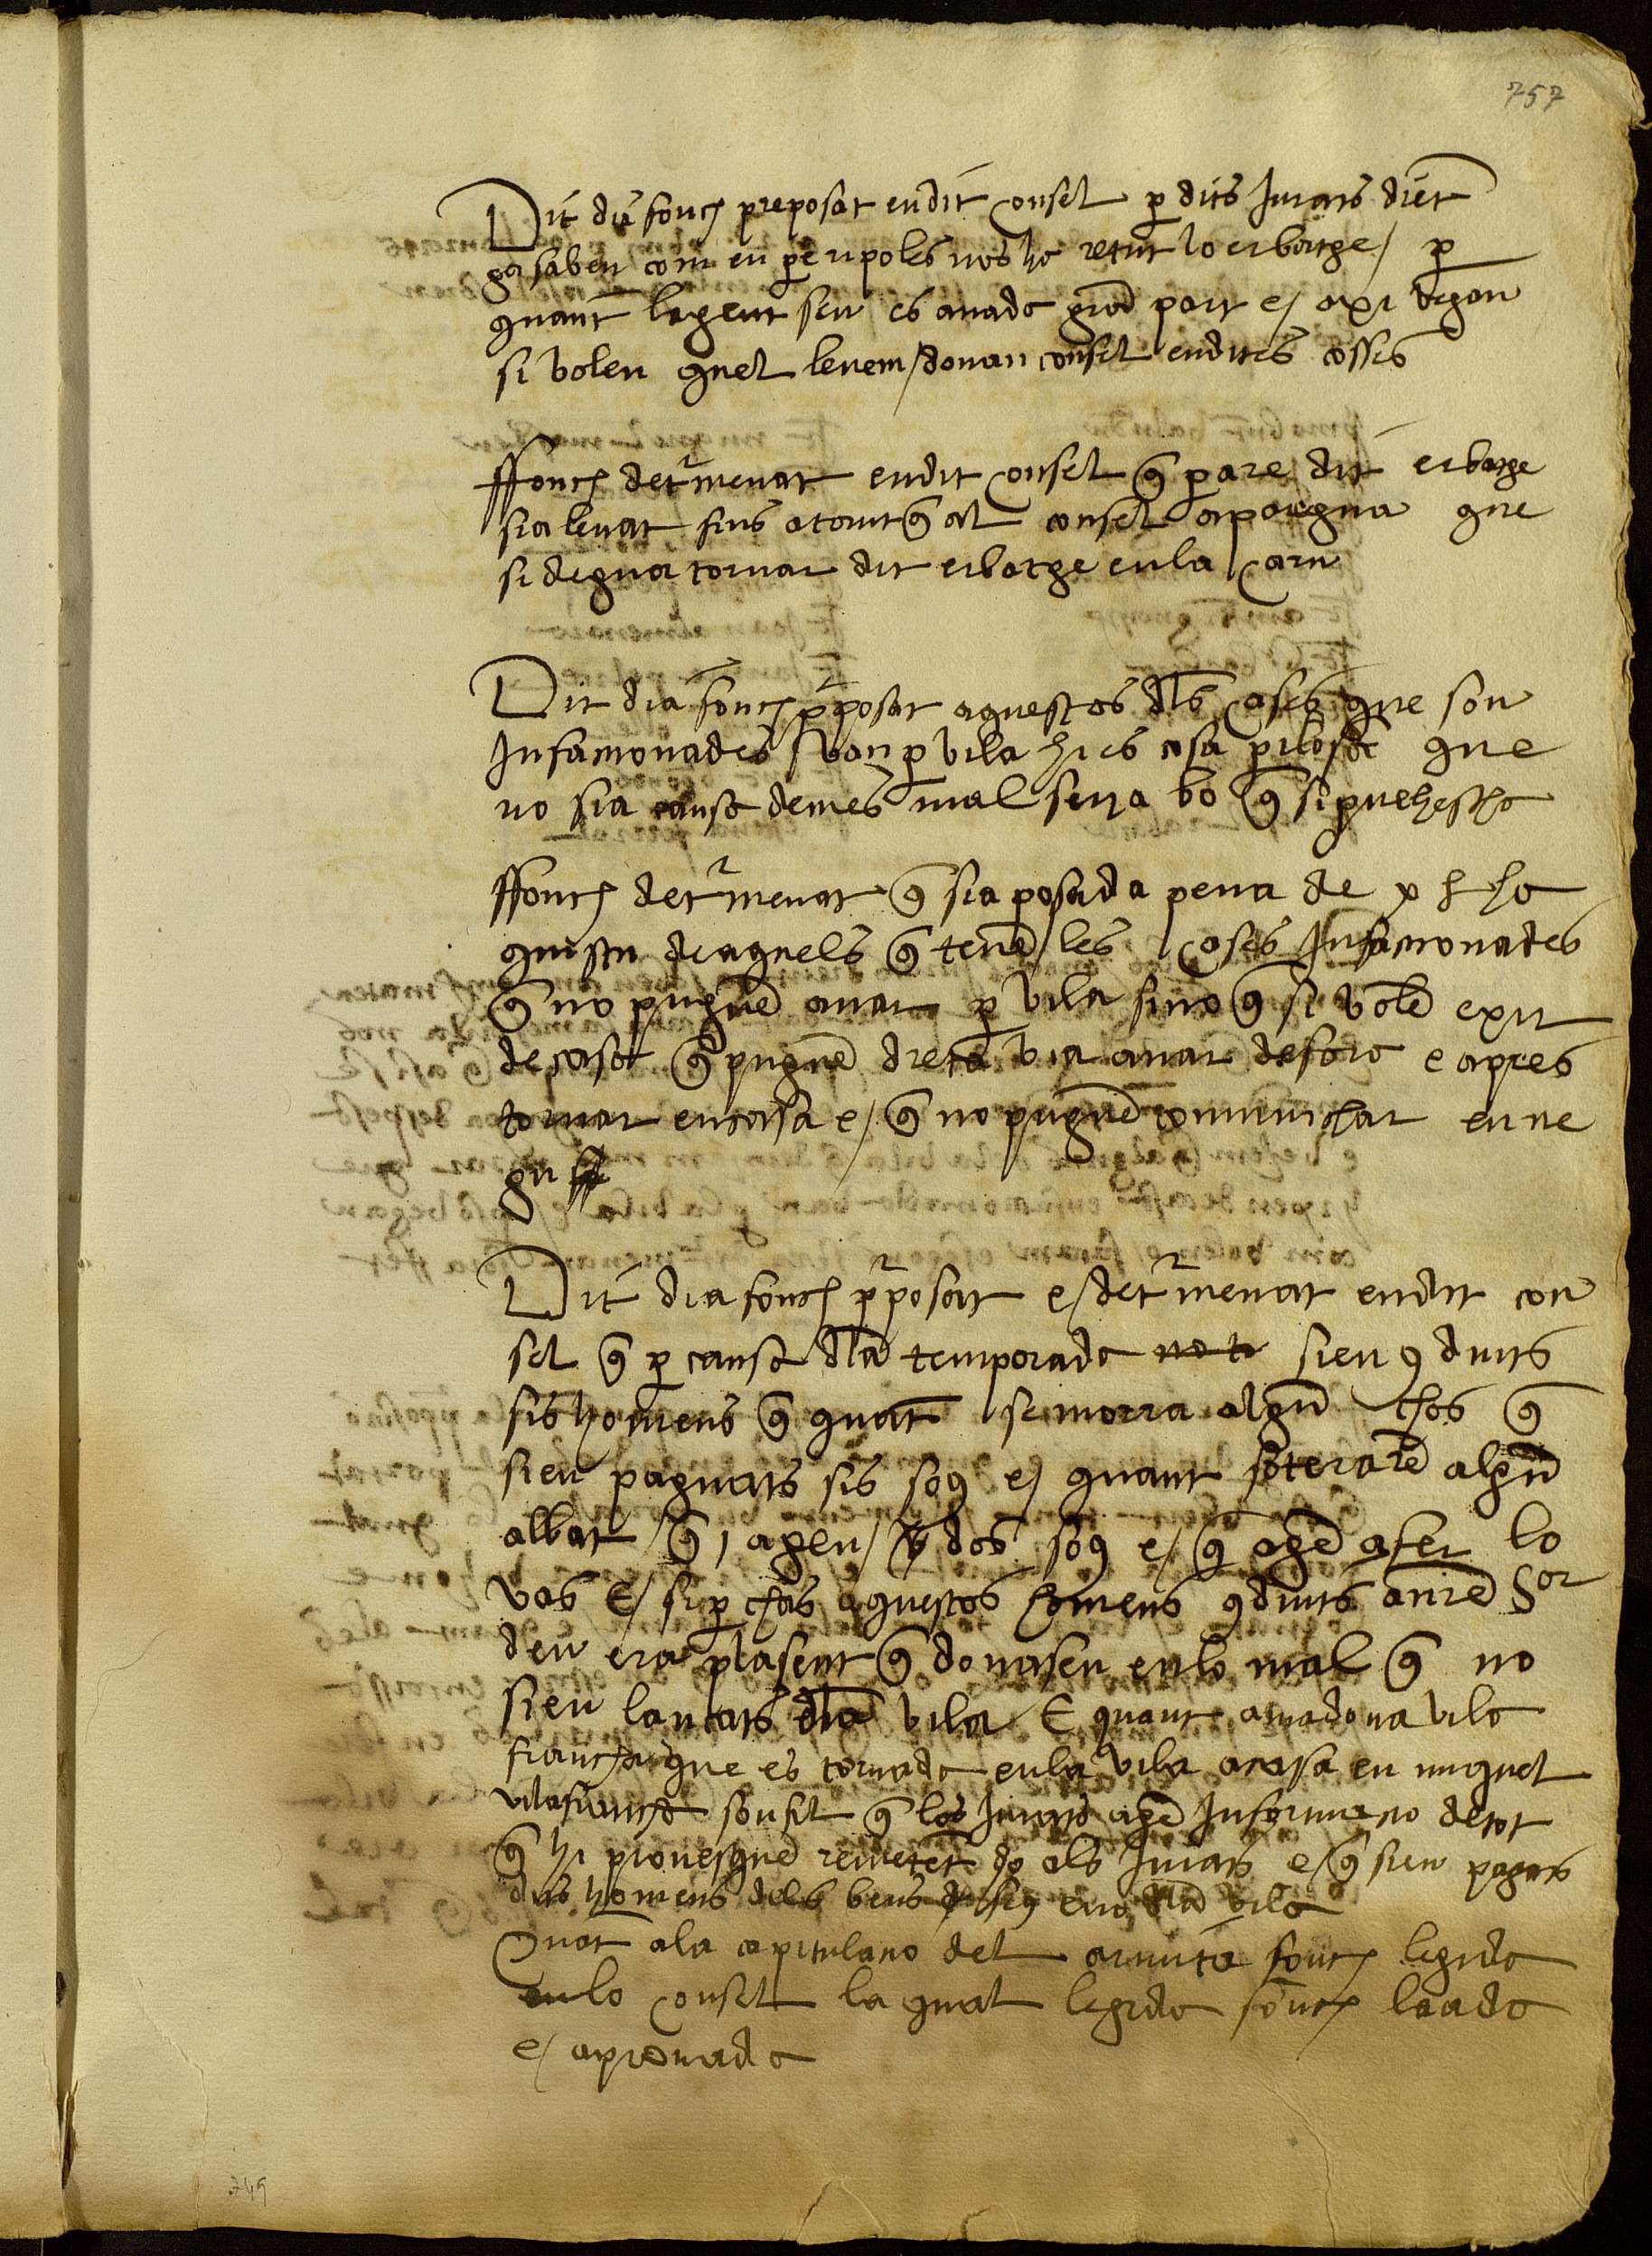 757
Dit dia fonch preposat en dit consel per dits Jurats dient
ga saben com en pere ripoles nos ha retut lo erbatge / per
quant la gent sen es anada grad part e axi vegan
si volen quel levem / donan consel en dites cosses
ffonch determenat en dit consel que per are dit erbatge
sia levat fins atant que al consel aparegua que
si degua tornar dit erbatge en la carn
Dit dia fonch preposat aquestes dls cases que son
Infacionades van per vila hi es cosa perilosa que
no sia causa de mes mal seria bo que si provehescha
ffonch determenat que sia posada pena de x ll ha
quiscu de aquels que tene les cases Infacionades
que no pugue anar per vila sino que si vole exir
de casa que pugue dreta via anar defora e apres
tornar en casa e que no pugue comunichar en ne
gu
Dit dia fonch preposat e determenat en dit con
sel que per causa dla temporada no te sien conduits
sis homens que quant se morra algu chos que
sien paguats sis sous e quant soterare algu
albat que i agen dos sous e que age a fer lo
vas E si per chas aquestos homens conduits anire Sor
deu era plasent que donasen en lo mal que no
sien lansats dla vila E quant a madona vila
francha que es tornada en la vila a casa en miquel
vilafrancha son fil que los Jurats age Informacio de tot
que hi provesque remetent do als Jurats e que sien pagats
dits homens dels bens de sequ eno dla vila
Quat a la capitulacio del armita fonch legida
en lo consel la qual legida fonch loada
e aprovada
749